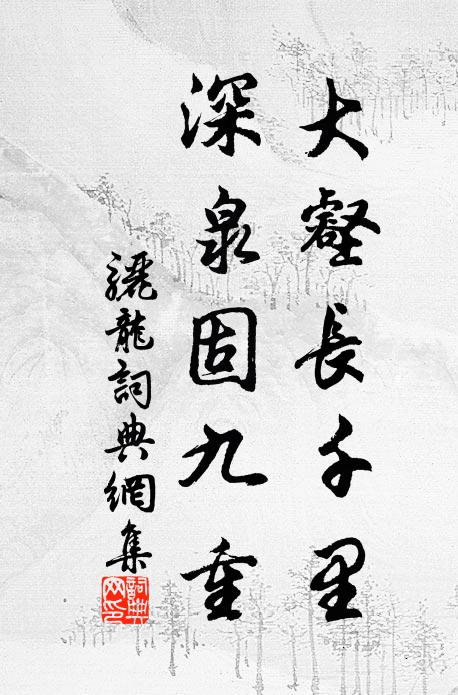 大壑長千里
深泉固九重
驪龍詞典網集
詞典網印